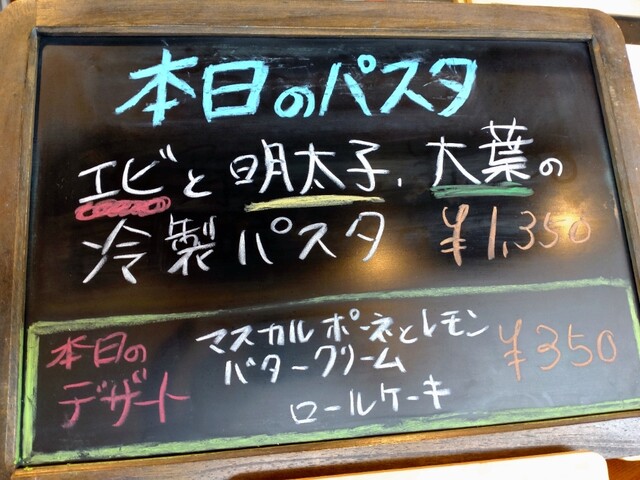 本日のパスタ
エビと明太子、大葉の
冷製パスタ ¥1,350
本日の
デザート
マスカルポーネとレモン
バタークリーム
ロールケーキ
¥350